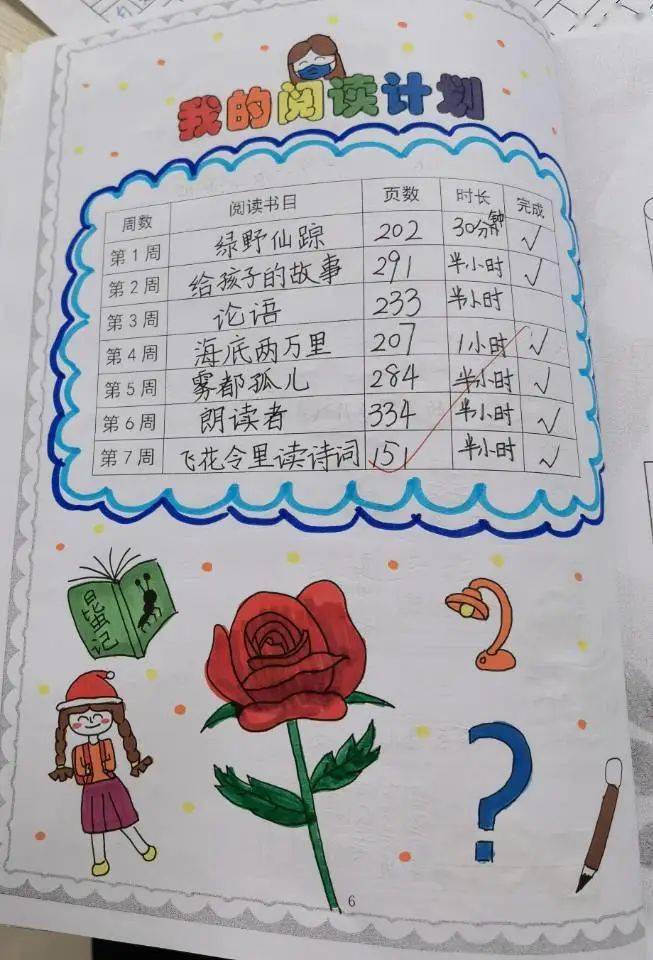 我的阅读计划
周数 阅读书目 页数 时长 完成
第1周 绿野仙踪 202 30分钟 √
第2周 给孩子的故事 291 半小时 √
第3周 论语 233 半小时
第4周 海底两万里 207 1小时 √
第5周 雾都孤儿 284 半小时 √
第6周 朗读者 334 半小时 √
第7周 飞花令里读诗词 151 半小时 √
昆虫记
?
6